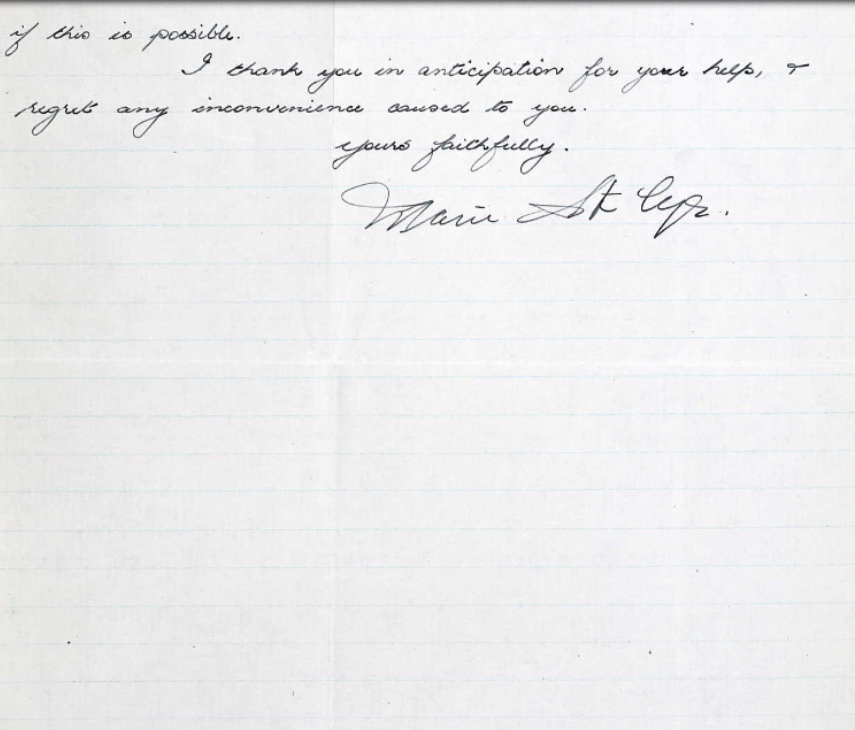 if this is possible.
I thank you in anticipation for your help, &
regret any inconvenience caused to you.
yours faithfully.
Marie St